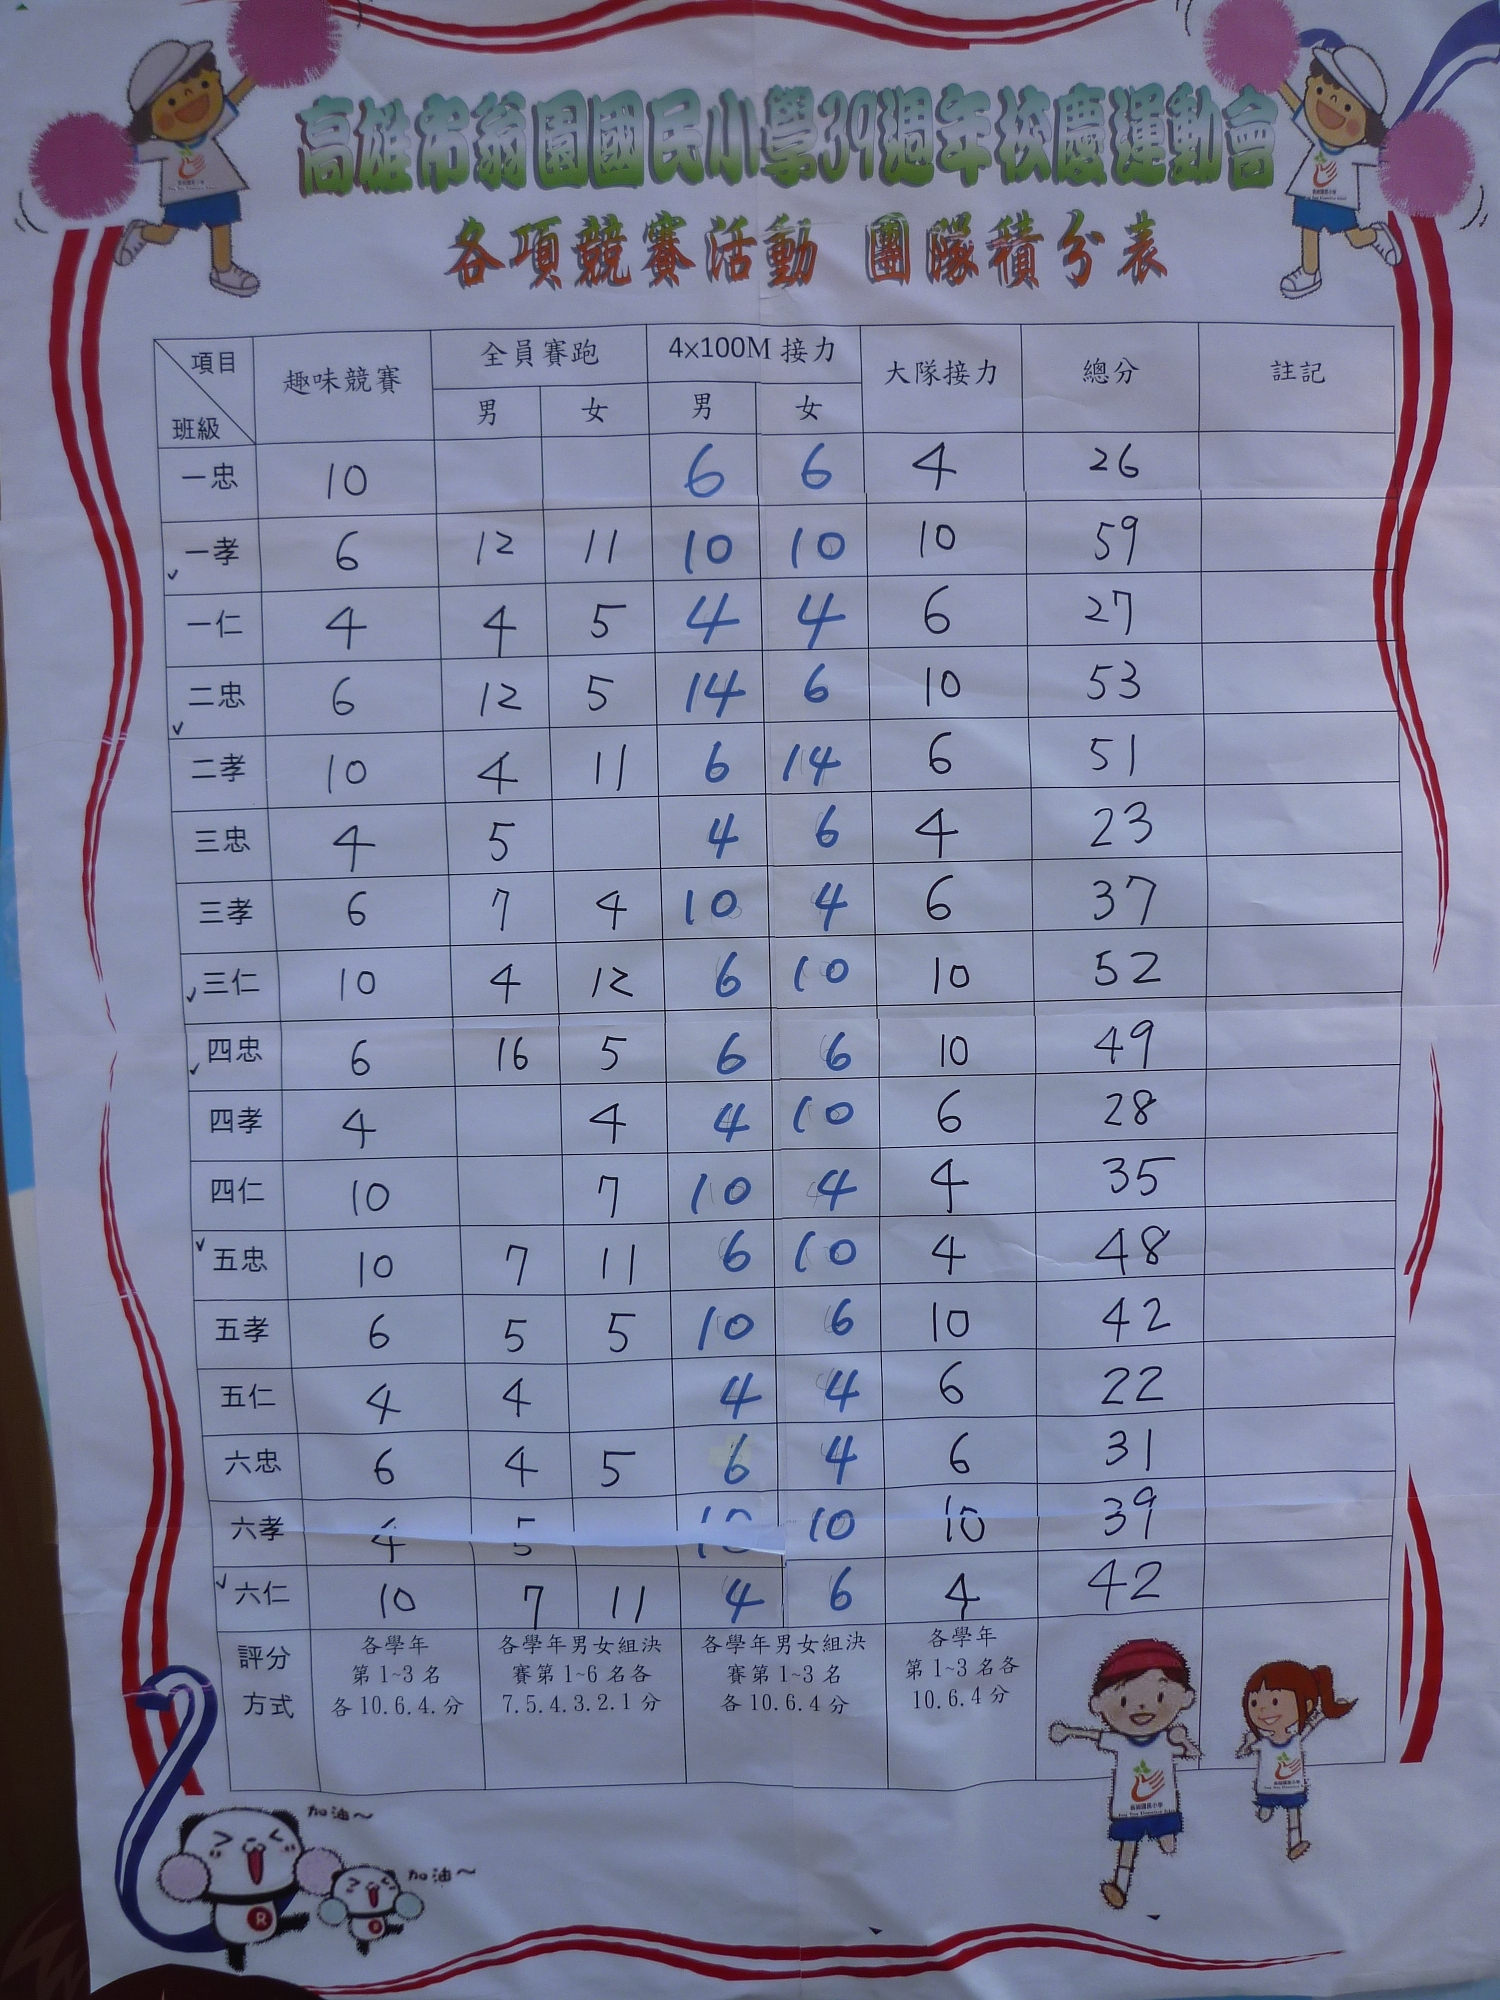 高雄市翁園國民小學39週年校慶運動會
各項競賽活動 團隊積分表
項目 趣味競賽 全員賽跑 4×100M 接力 大隊接力 總分 註記
班級 男 女 男 女
一忠 10 6 6 4 26
一孝 6 12 11 10 10 10 59
一仁 4 4 5 4 4 6 27
二忠 6 12 5 14 6 10 53
二孝 10 4 11 6 14 6 51
三忠 4 5 4 6 4 23
三孝 6 7 4 10 4 6 37
三仁 10 4 12 6 10 10 52
四忠 6 16 5 6 6 10 49
四孝 4 4 4 10 6 28
四仁 10 7 10 4 4 35
五忠 10 7 11 6 10 4 48
五孝 6 5 5 10 6 10 42
五仁 4 4 4 4 6 22
六忠 6 4 5 6 4 6 31
六孝 4 5 10 10 10 39
六仁 10 7 11 4 6 4 42
評分方式
各學年
第1~3名
各10.6.4.分
各學年男女組決
賽第1~6名各
7.5.4.3.2.1分
各學年男女組決
賽第1~3名
各10.6.4分
各學年
第1~3名各
10.6.4分
加油~
加油~
R